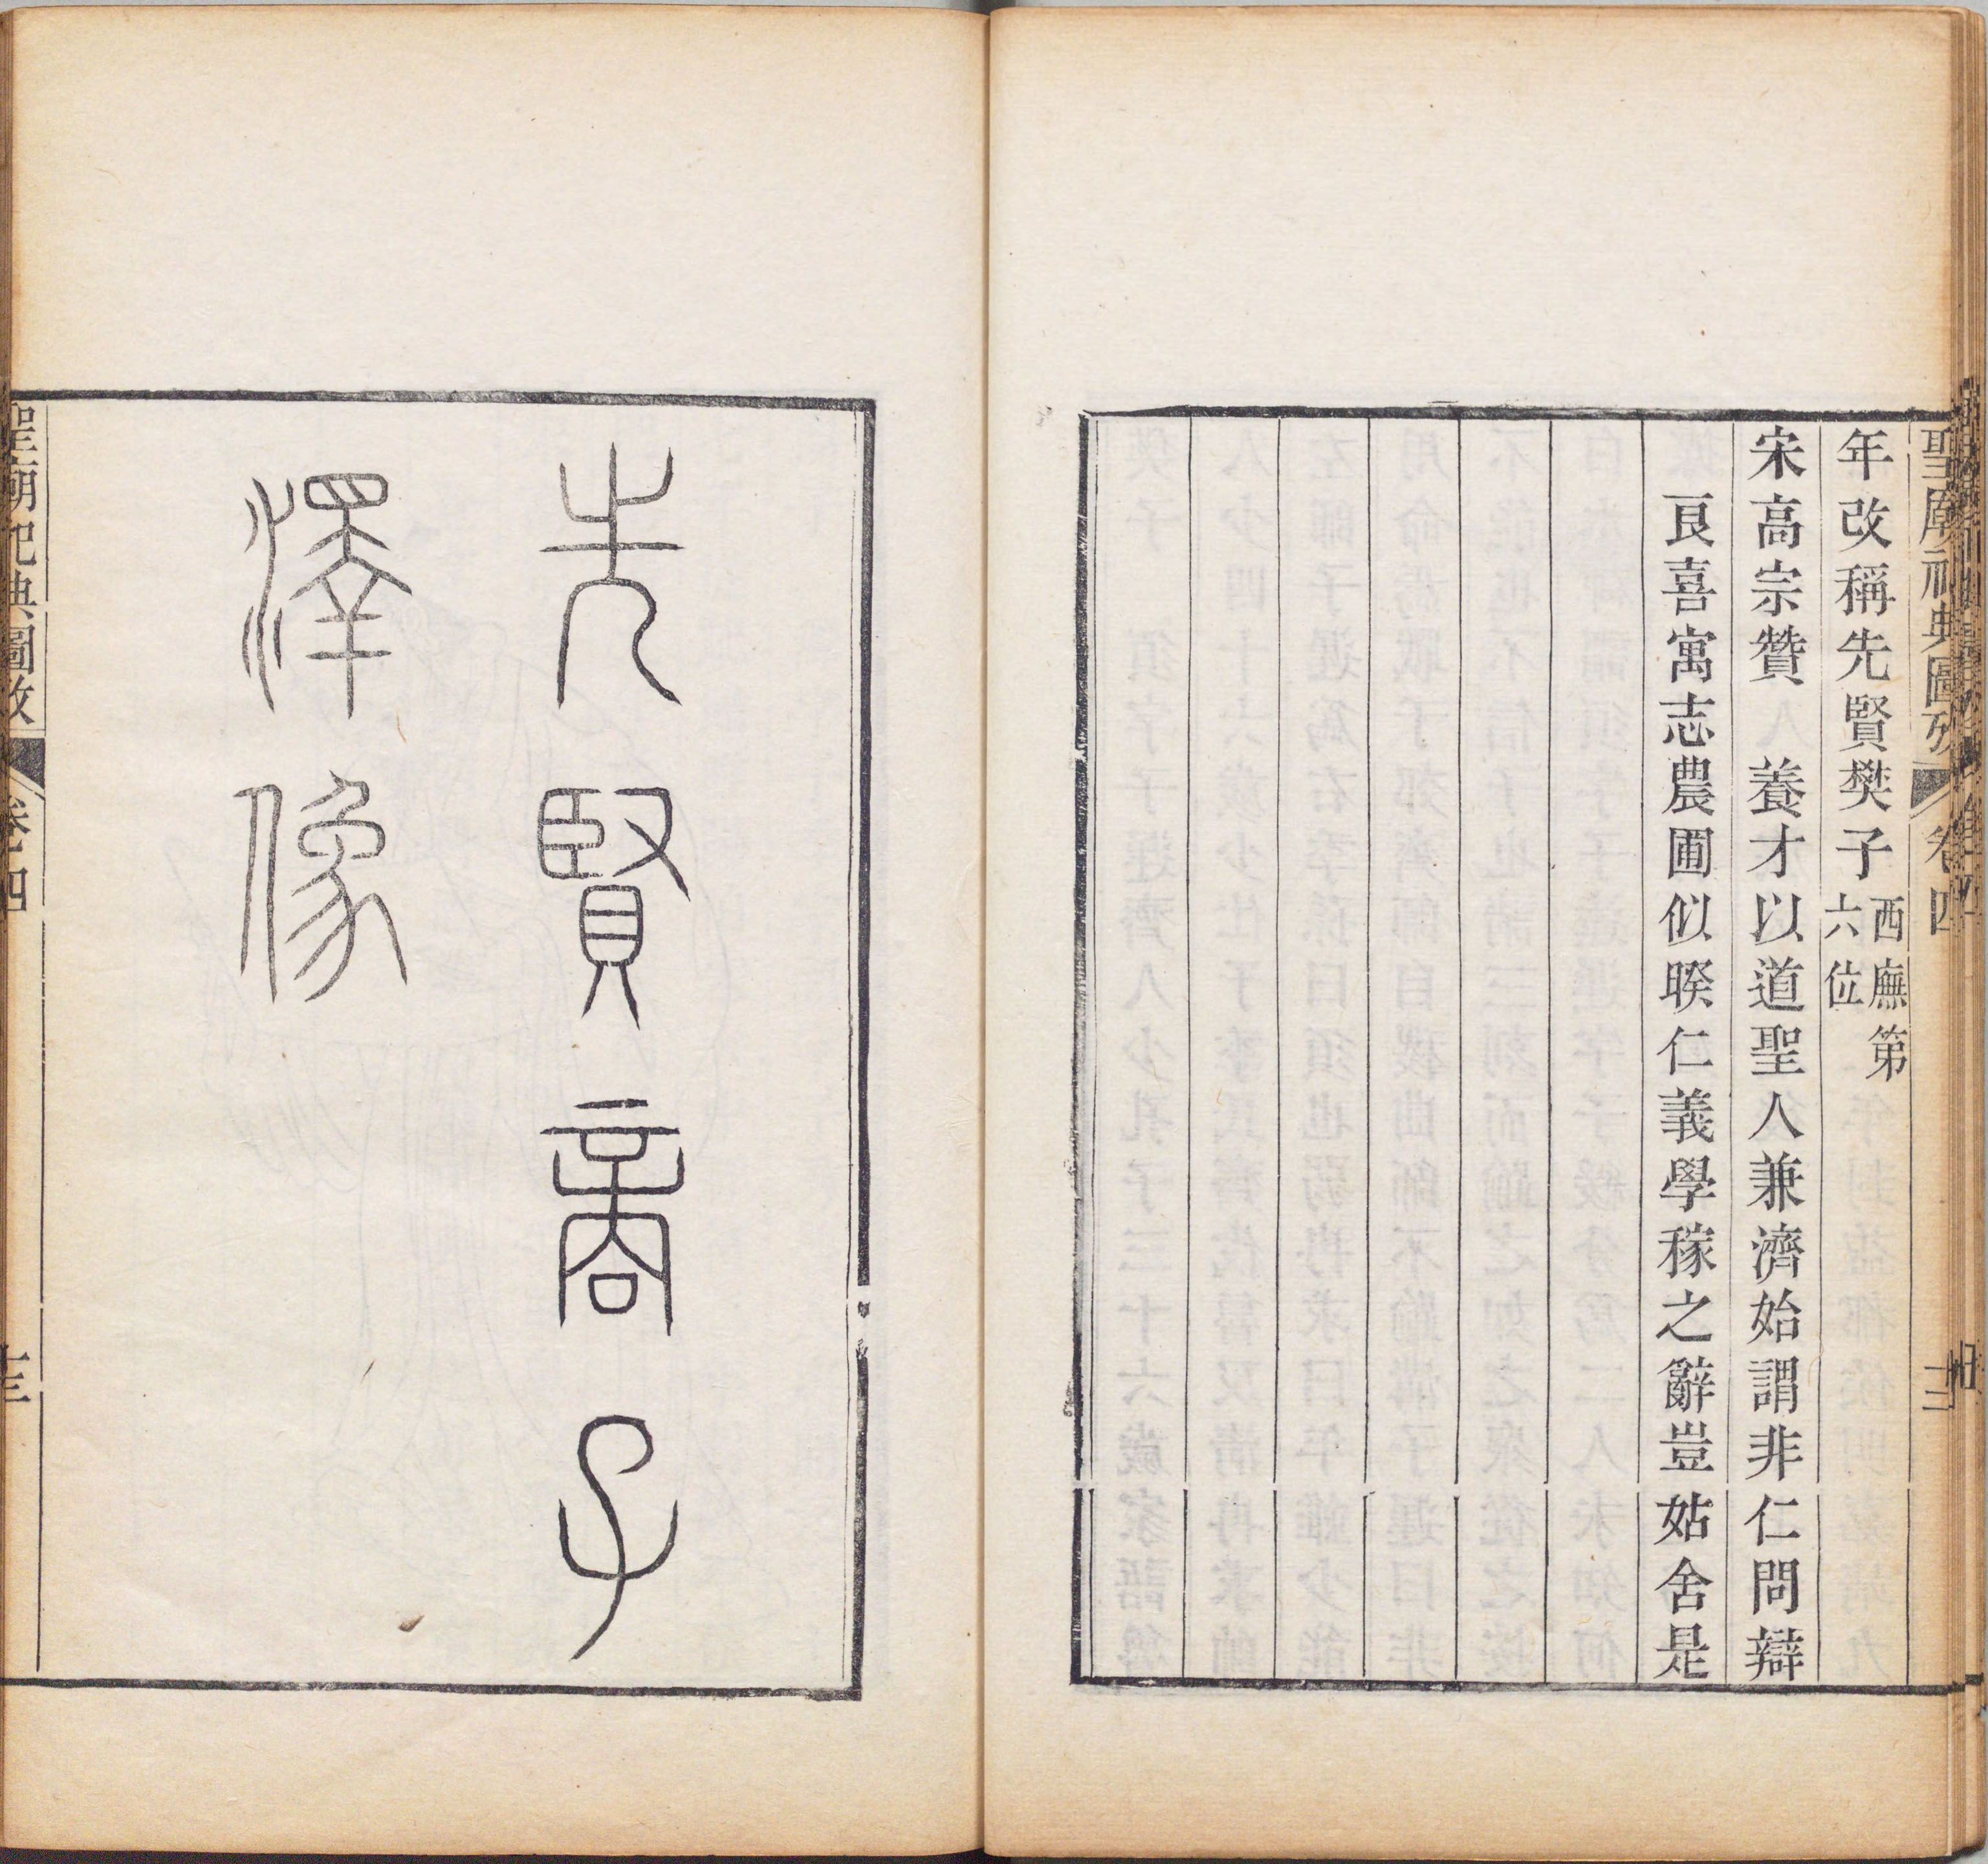 聖廟祀典圖攷 卷四 十二
年改稱先賢樊子西廡第六位
宋高宗贊 養才以道聖人兼濟始謂非仁問辯
良喜寓志農圃似睽仁義學稼之辭豈姑舍是
先賢商子
澤像
聖廟祀典圖攷 卷四 十三